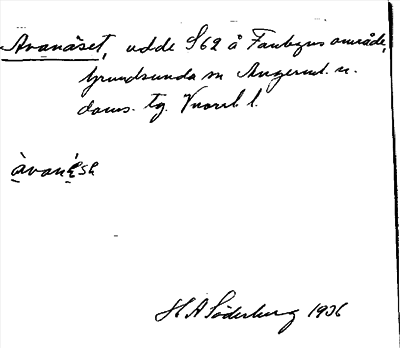 Avanäset, udde S62 å Faubyns område,
Grundsunda sn Ångerml. n.
doms. tg. Vnorrl l.
àvanǽsɛ
H A Söderberg 1936